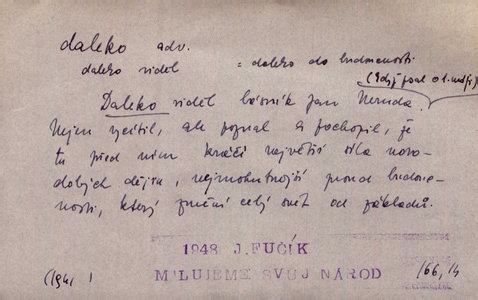 daleko adv.
daleko viděl = daleko do budoucnosti
(když psal o 1. máji)
Daleko viděl básník Jan Neruda.
Nejen vycítil, ale poznal a pochopil, že
tu před ním kráčí největší síla novo-
dobých dějin, nejmohutnější proud budouc-
nosti, který změní celý svět od základů.
1948 J. FUČÍK
(1941) MILUJEME SVŮJ NÁROD 166, 14